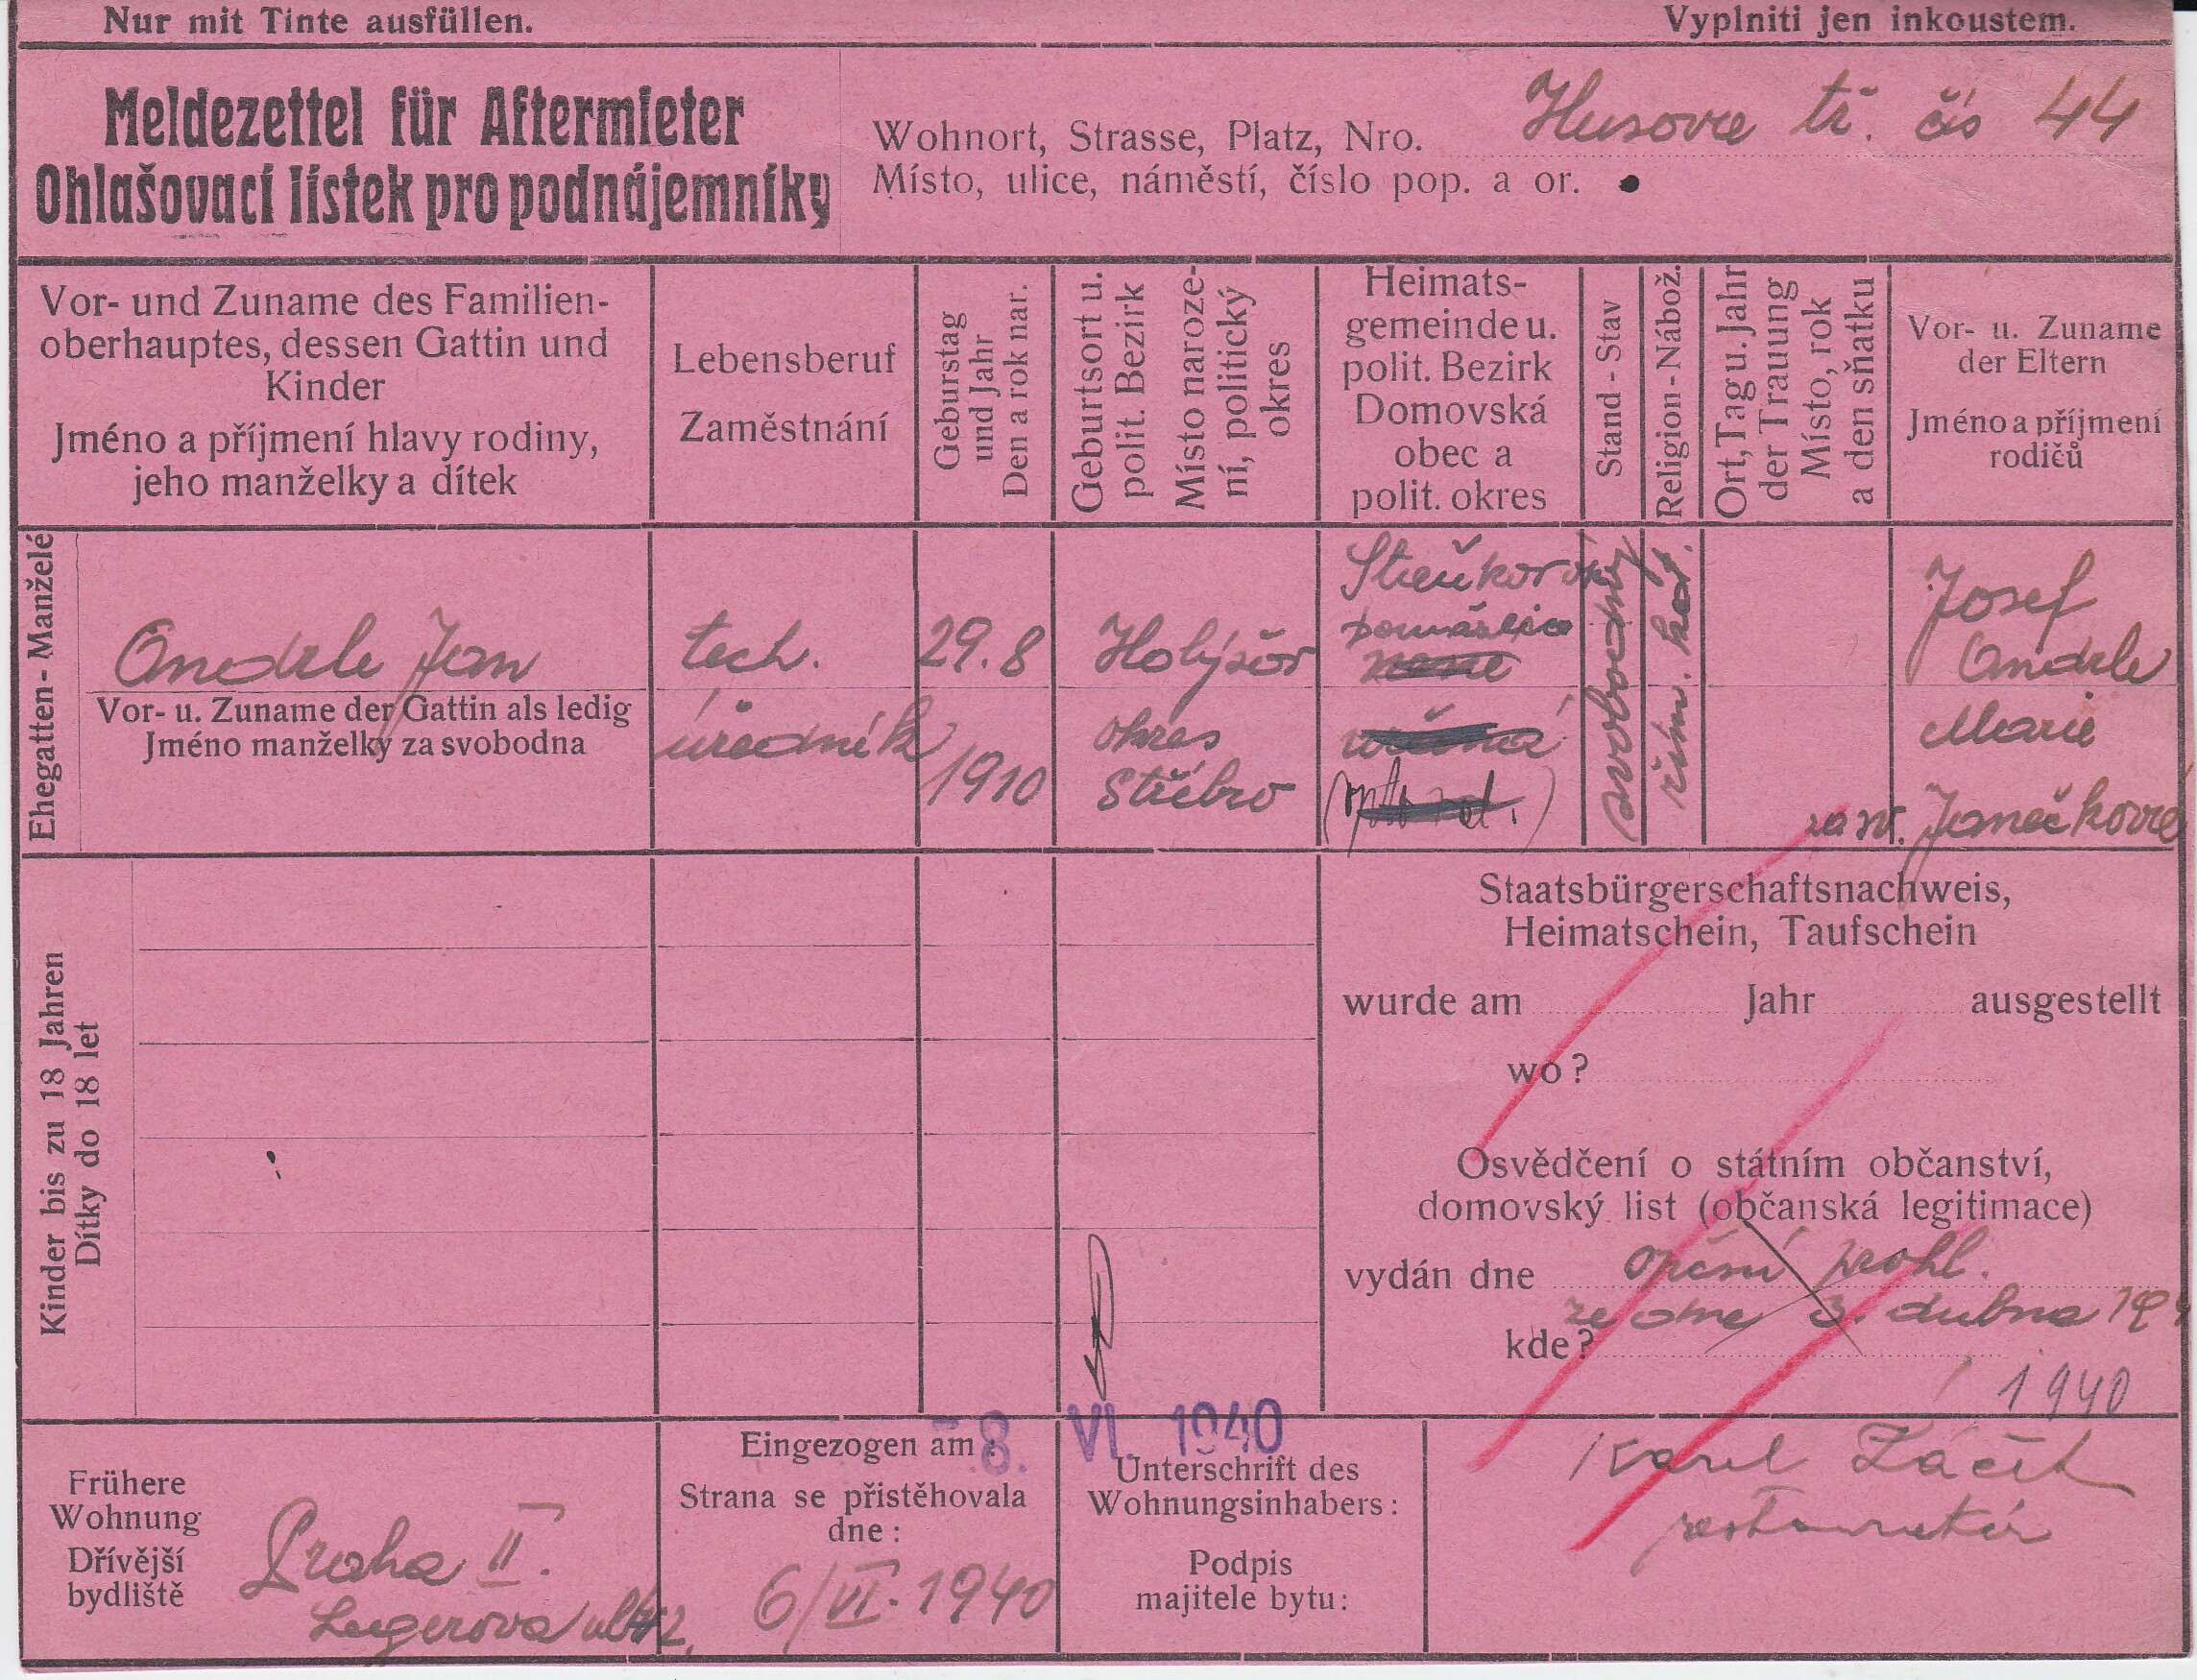 Nur mit Tinte ausfüllen.
Vyplniti jen inkoustem.
Meldezettel für Aftermieter
Ohlašovací lístek pro podnájemníky
Wohnort, Strasse, Platz, Nro.
Husova tř. čís 44
Místo, ulice, náměstí, číslo pop. a or.
Vor- und Zuname des Familien-
oberhauptes, dessen Gattin und
Kinder
Jméno a příjmení hlavy rodiny,
jeho manželky a dítek
Lebensberuf
Zaměstnání
Geburstag
und Jahr
Den a rok nar.
Geburtsort u.
polit. Bezirk
Místo naroze-
ní, politický
okres
Heimats-
gemeinde u.
polit. Bezirk
Domovská
obec a
polit. okres
Stand - Stav
Religion - Nábož.
Ort, Tag u. Jahr
der Trauung
Místo, rok
a den sňatku
Vor- u. Zuname
der Eltern
Jméno a příjmení
rodičů
Ehegatten - Manželé
Andrle Jan
Vor- u. Zuname der Gattin als ledig
Jméno manželky za svobodna
tech.
úředník
29. 8
1910
Holýšov
okres
Stříbro
Domažlice
svobodný
řím. kat.
Josef
Andrle
Marie
Janečková
Kinder bis zu 18 Jahren
Dítky do 18 let
Staatsbürgerschaftsnachweis,
Heimatschein, Taufschein
wurde am Jahr ausgestellt
wo?
Osvědčení o státním občanství,
domovský list (občanská legitimace)
vydán dne opční prohl.
ze dne 3. dubna
kde?
1940
8. VI. 1940
Frühere
Wohnung
Dřívější
bydliště
Praha II.
Eingezogen am:
Strana se přistěhovala
dne:
6/VI. 1940
Unterschrift des
Wohnungsinhabers:
Podpis
majitele bytu:
Karel